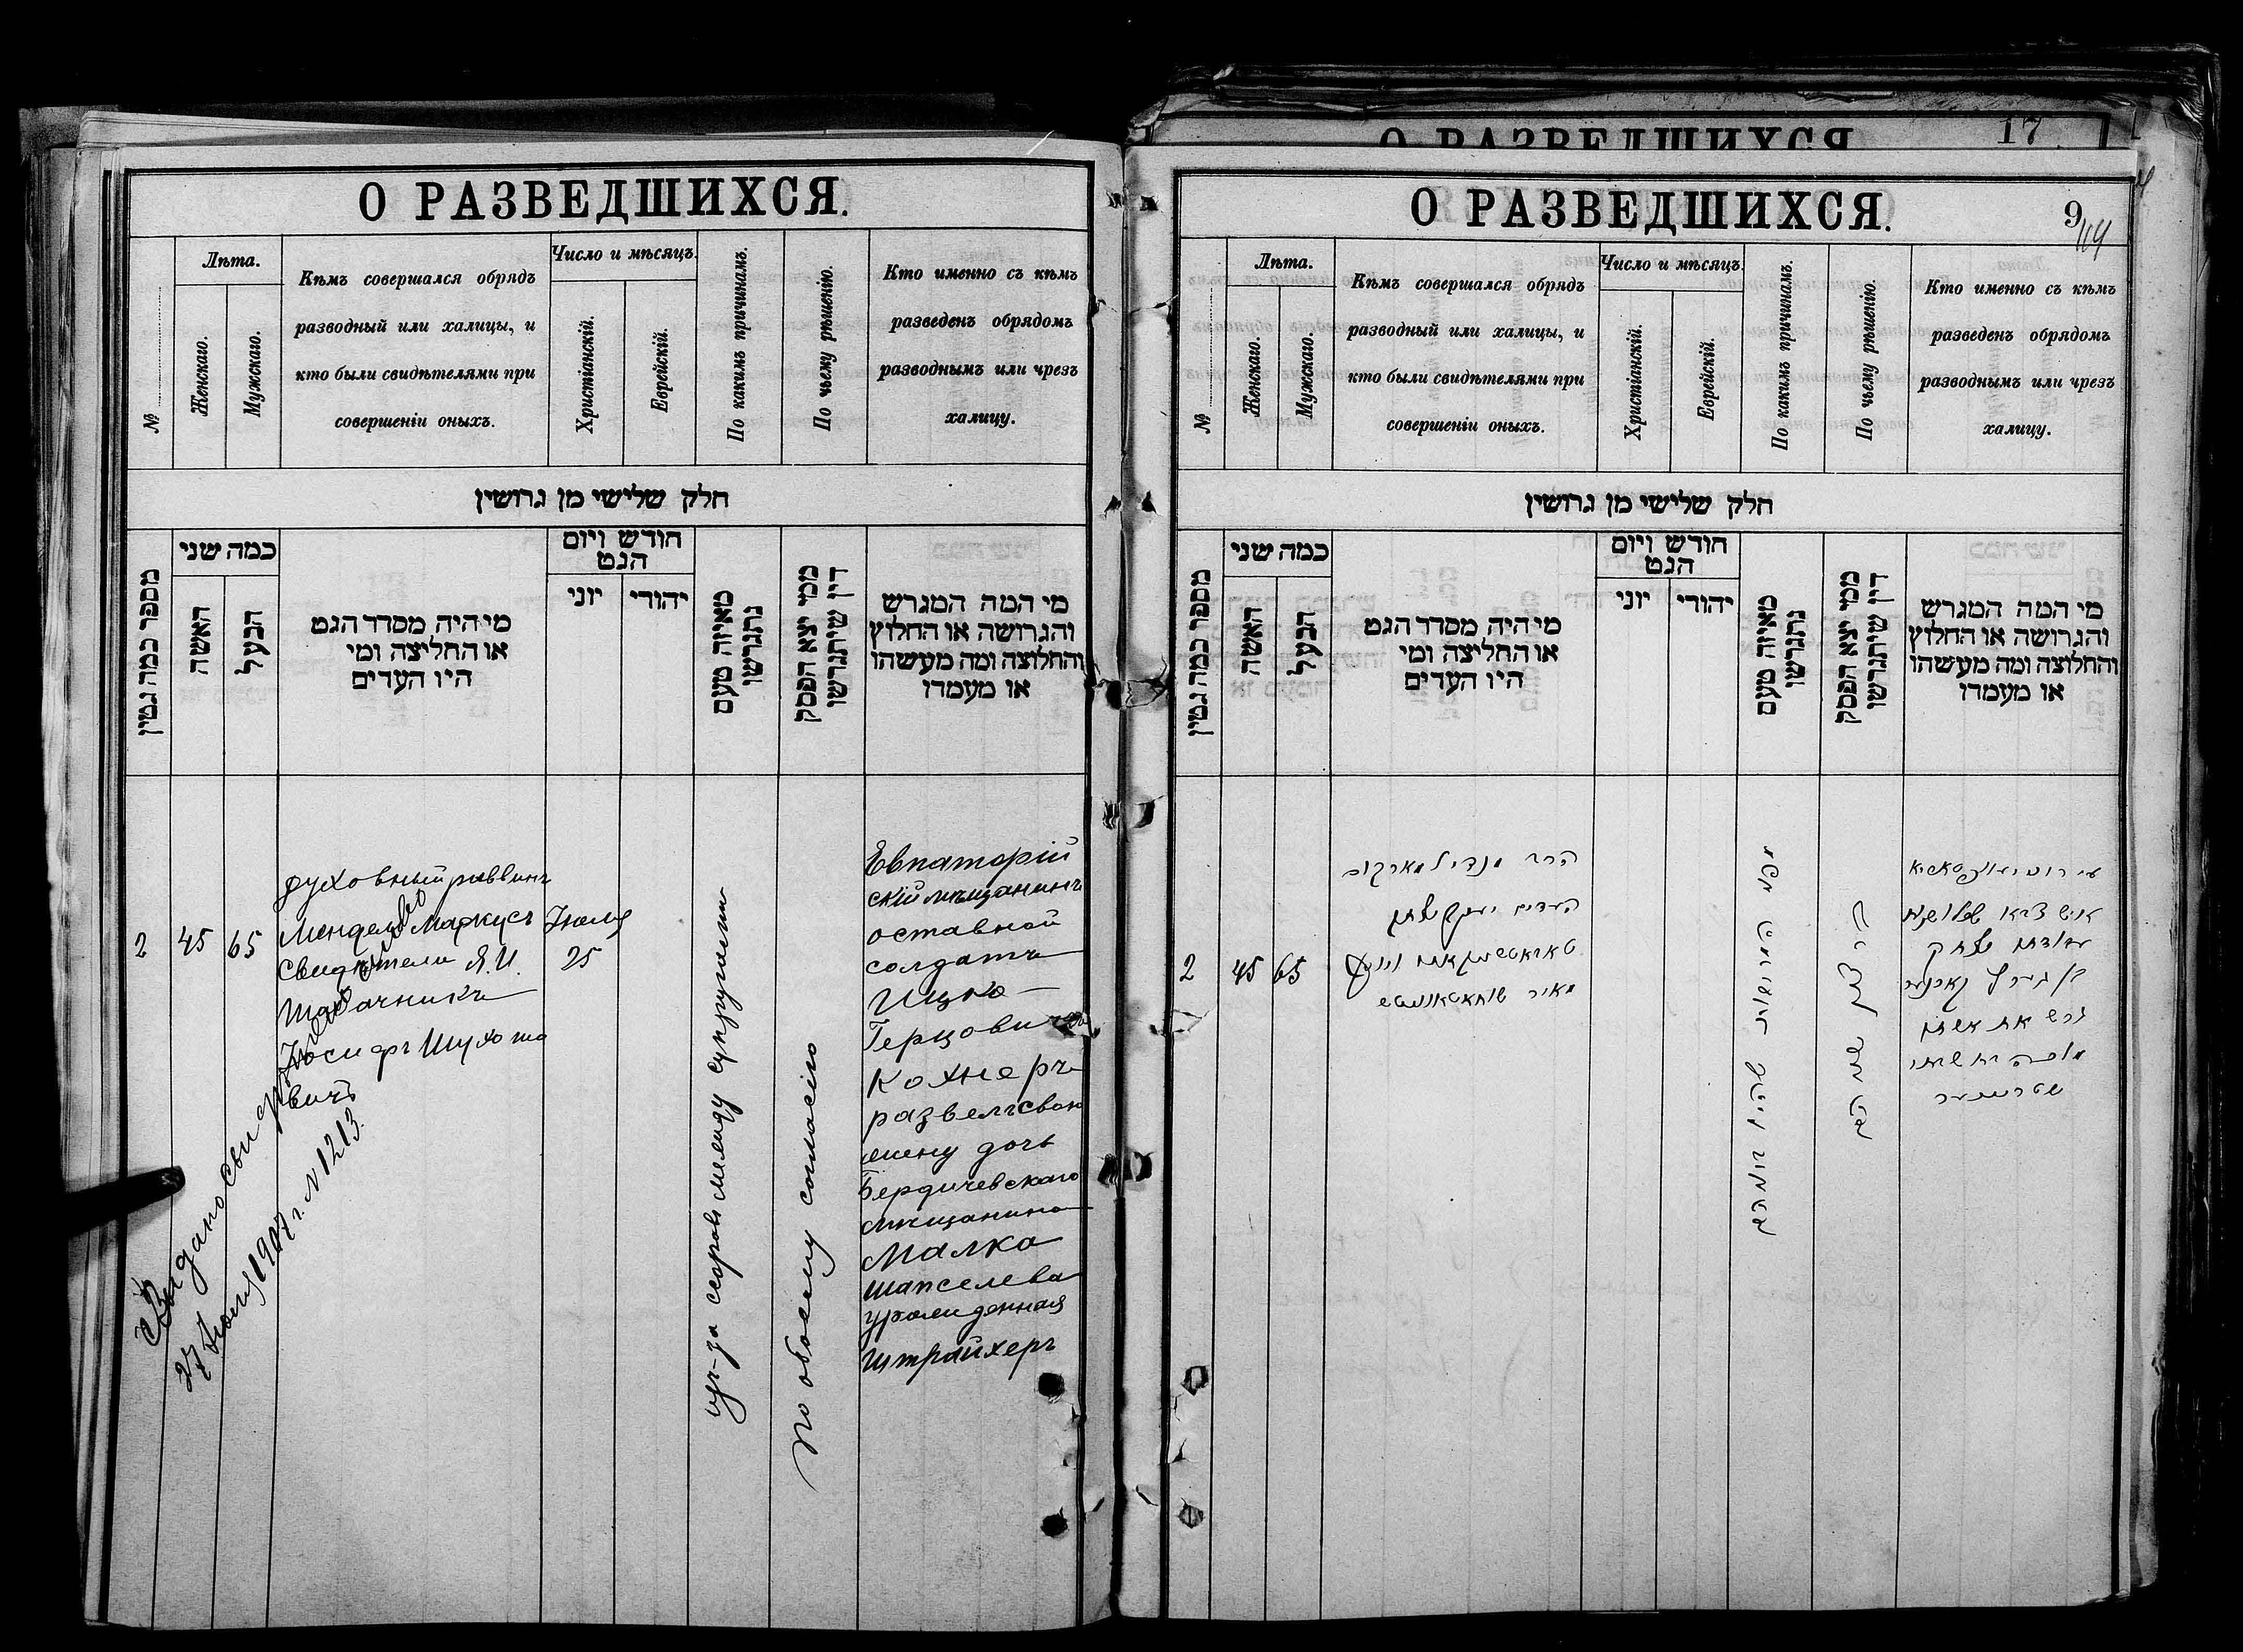 О РАЗВЕДШИХСЯ.
№
Лѣта.
Женскаго.
Мужскаго.
Кѣмъ совершался обрядъ
разводный или халицы, и
кто были свидѣтелями при
совершеніи оныхъ.
Число и мѣсяцъ.
Христіанскій.
Еврейскій.
По какимъ причинамъ.
По чьему рѣшенію.
Кто именно съ кѣмъ
разведенъ обрядомъ
разводнымъ или чрезъ
халицу.
חלק שלישי מן גרושין
מספר כמה גטין
כמה שני
האשה
הבעל
מי היה מסדר הגט
או החליצה ומי
היו העדים
חודש ויום
הגט
יוני
יהודי
מאיזה טעם
נתגרשו
ממי יצא הפסק
דין שיתגרשו
מי המה המגרש
והגרושה או החלוץ
והחלוצה ומה מעשהו
או מעמדו
2
45
65
духовный раввинъ
Мендель Маркусъ
свидѣтели Я. И.
Табачникъ
Іосифъ Шухота
вичъ
Іюля
25
изъ-за ссоръ между супругами
по обоему согласію
Евпаторій
скій мѣщанинъ
оставной
солдатъ
Ицко
Герцовичъ
Кохнеръ
развелъ свою
жену дочь
Бердичевскаго
мѣщанина
Малка
Шапселева
урожденная
Штрайхеръ
Выдано
27 1907 г. № 1213.
17
О РАЗВЕДШИХСЯ.
9
№
Лѣта.
Женскаго.
Мужскаго.
Кѣмъ совершался обрядъ
разводный или халицы, и
кто были свидѣтелями при
совершеніи оныхъ.
Число и мѣсяцъ.
Христіанскій.
Еврейскій.
По какимъ причинамъ.
По чьему рѣшенію.
Кто именно съ кѣмъ
разведенъ обрядомъ
разводнымъ или чрезъ
халицу.
חלק שלישי מן גרושין
מספר כמה גטין
כמה שני
האשה
הבעל
מי היה מסדר הגט
או החליצה ומי
היו העדים
חודש ויום
הגט
יוני
יהודי
מאיזה טעם
נתגרשו
ממי יצא הפסק
דין שיתגרשו
מי המה המגרש
והגרושה או החלוץ
והחלוצה ומה מעשהו
או מעמדו
2
45
65
הרב מנדיל מארקוס
העדים יעקב יצחק
מאיר
איש צבא
יצחק
בן הירץ
גרש את אשתו